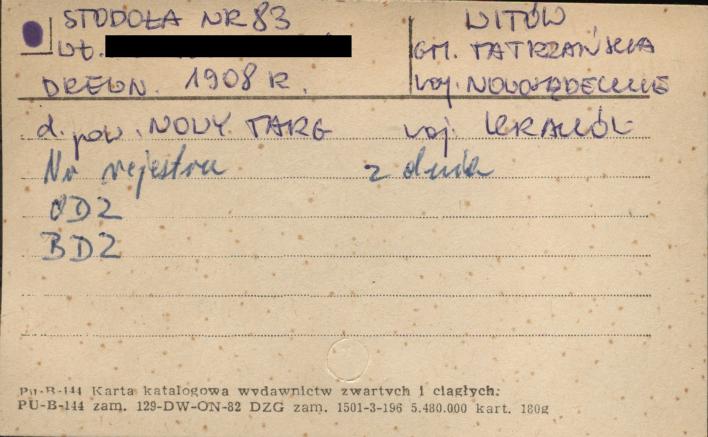 STODOŁA NR 83
WITÓW
wł.
GM. TATRZAŃSKA
DREWN. 1908 R.
woj. NOWOSĄDECKIE
d. pow. NOWY TARG
woj. KRAKÓW
Nr rejestru
z dnia
ODZ
BDZ
Pu-B-144 Karta katalogowa wydawnictw zwartych i ciągłych:
PU-B-144 zam. 129-DW-ON-82 DZG zam. 1501-3-196 5.480.000 kart. 180g